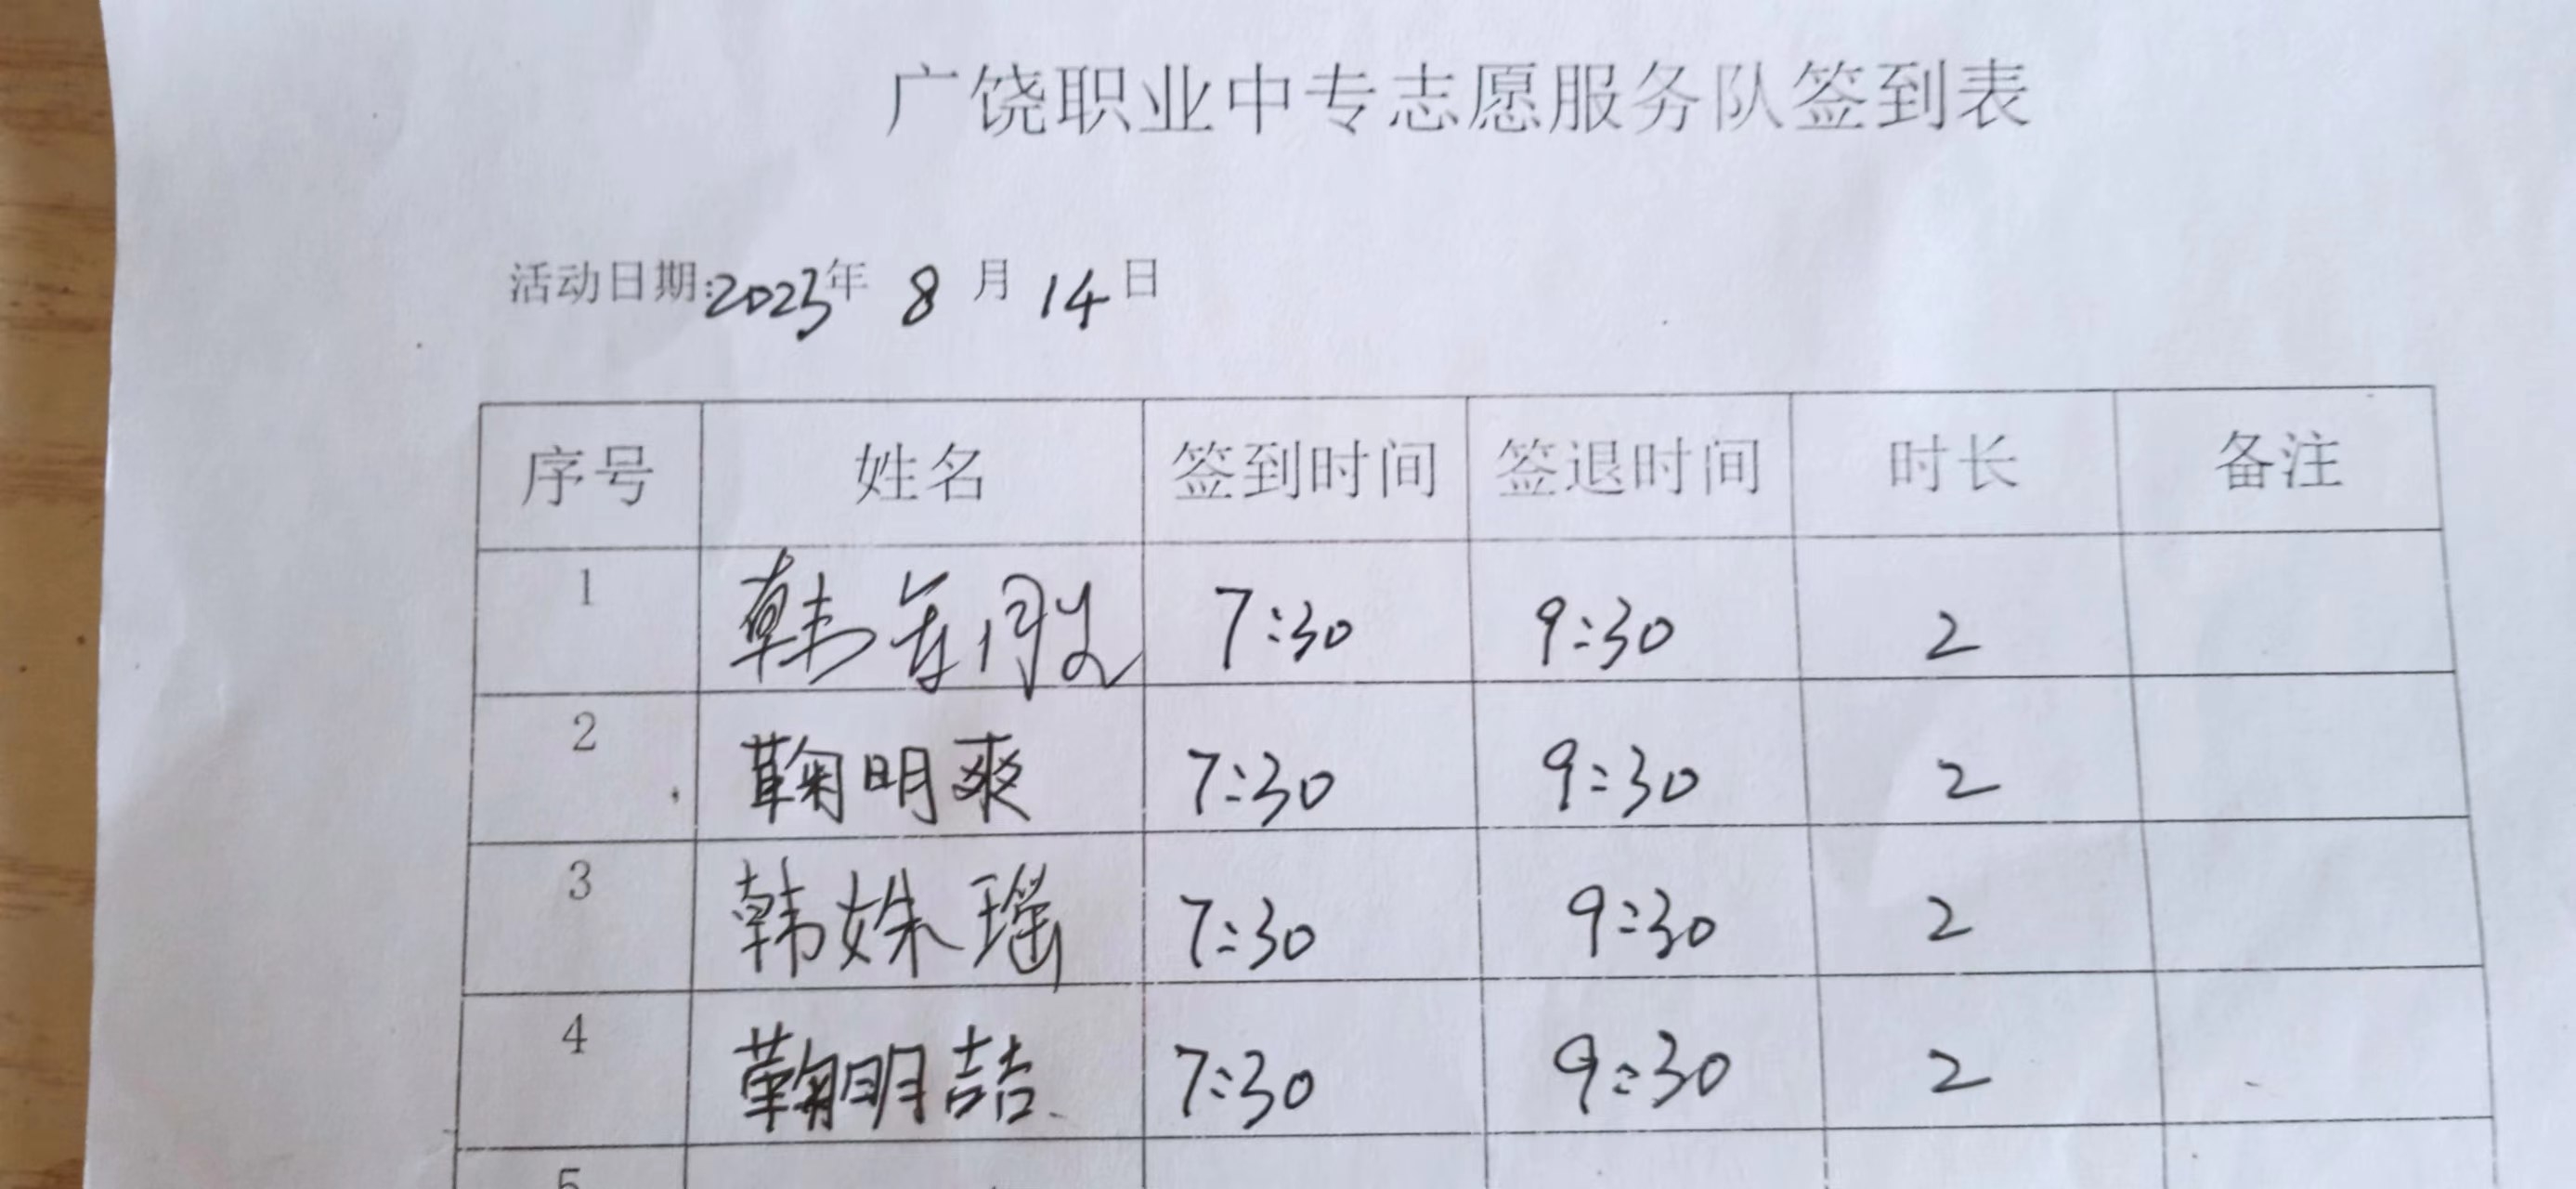 广饶职业中专志愿服务队签到表
活动日期:2023年 8 月 14日
序号 姓名 签到时间 签退时间 时长 备注
1 韩 7:30 9:30 2
2 鞠明爽 7:30 9:30 2
3 韩姝瑶 7:30 9:30 2
4 鞠明喆 7:30 9:30 2
5